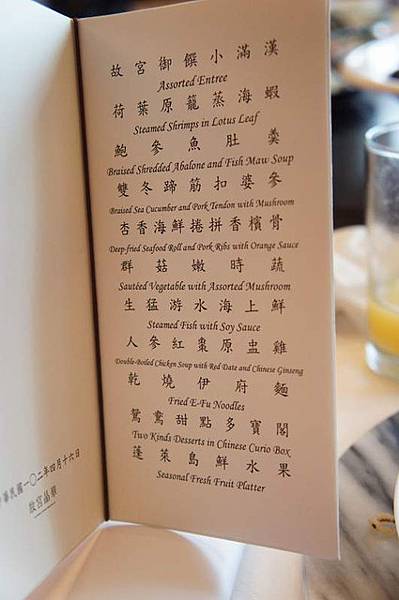 故宮御饌小滿漢
Assorted Entree
荷葉原籠蒸海蝦
Steamed Shrimps in Lotus Leaf
鮑參魚肚羹
Braised Shredded Abalone and Fish Maw Soup
雙冬蹄筋扣婆參
Braised Sea Cucumber and Pork Tendon with Mushroom
杏香海鮮捲拼香檳骨
Deep-fried Seafood Roll and Pork Ribs with Orange Sauce
群菇嫩時蔬
Sautéed Vegetable with Assorted Mushroom
生猛游水海上鮮
Steamed Fish with Soy Sauce
人參紅棗原盅雞
Double-Boiled Chicken Soup with Red Date and Chinese Ginseng
乾燒伊府麵
Fried E-Fu Noodles
鴛鴦甜點多寶閣
Two Kinds Desserts in Chinese Curio Box
蓬萊島鮮水果
Seasonal Fresh Fruit Platter
華民國一〇二年四月十六日
故宮晶華